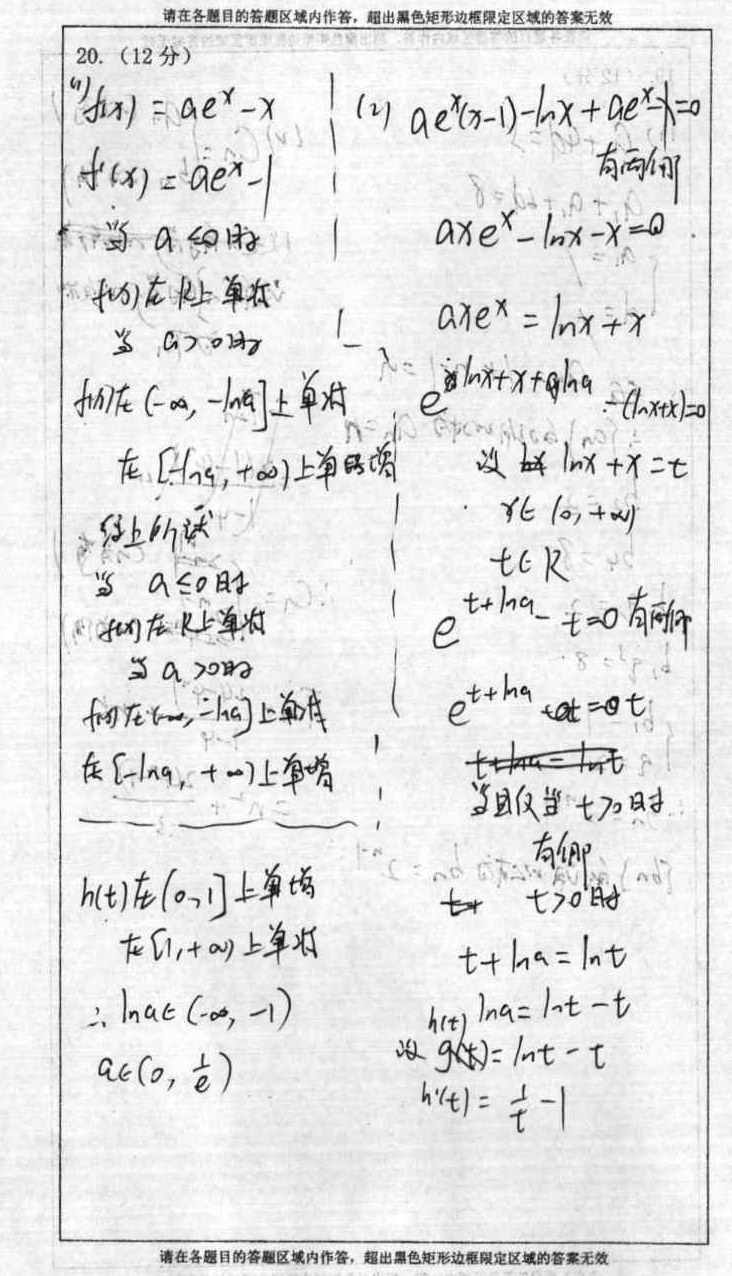 请在各题目的答题区域内作答，超出黑色矩形边框限定区域的答案无效
20.（12分）
(1) f(x) = ae^x - x
f'(x) = ae^x - 1
当 a ≤ 0 时
f(x) 在 R 上单减
当 a > 0 时
f(x) 在 (-∞, -lna] 上单减
在 [-lna, +∞) 上单增
综上所述
当 a ≤ 0 时
f(x) 在 R 上单减
当 a > 0 时
f(x) 在 (-∞, -lna] 上单减
在 [-lna, +∞) 上单增
(2) ae^x(x-1) - lnx + ae^x - x = 0
有两解
axe^x - lnx - x = 0
axe^x = lnx + x
e^{lnx+x+lna} - (lnx+x) = 0
设 lnx + x = t
x∈(0, +∞)
t∈R
e^{t+lna} - t = 0 有两解
e^{t+lna} = t
t+lna = lnt
当且仅当 t>0 时
有解
t>0 时
t + lna = lnt
lna = lnt - t
设 h(t) = lnt - t
h'(t) = 1/t - 1
h(t) 在 (0, 1] 上单增
在 [1, +∞) 上单减
∴ lna∈(-∞, -1)
a∈(0, 1/e)
请在各题目的答题区域内作答，超出黑色矩形边框限定区域的答案无效